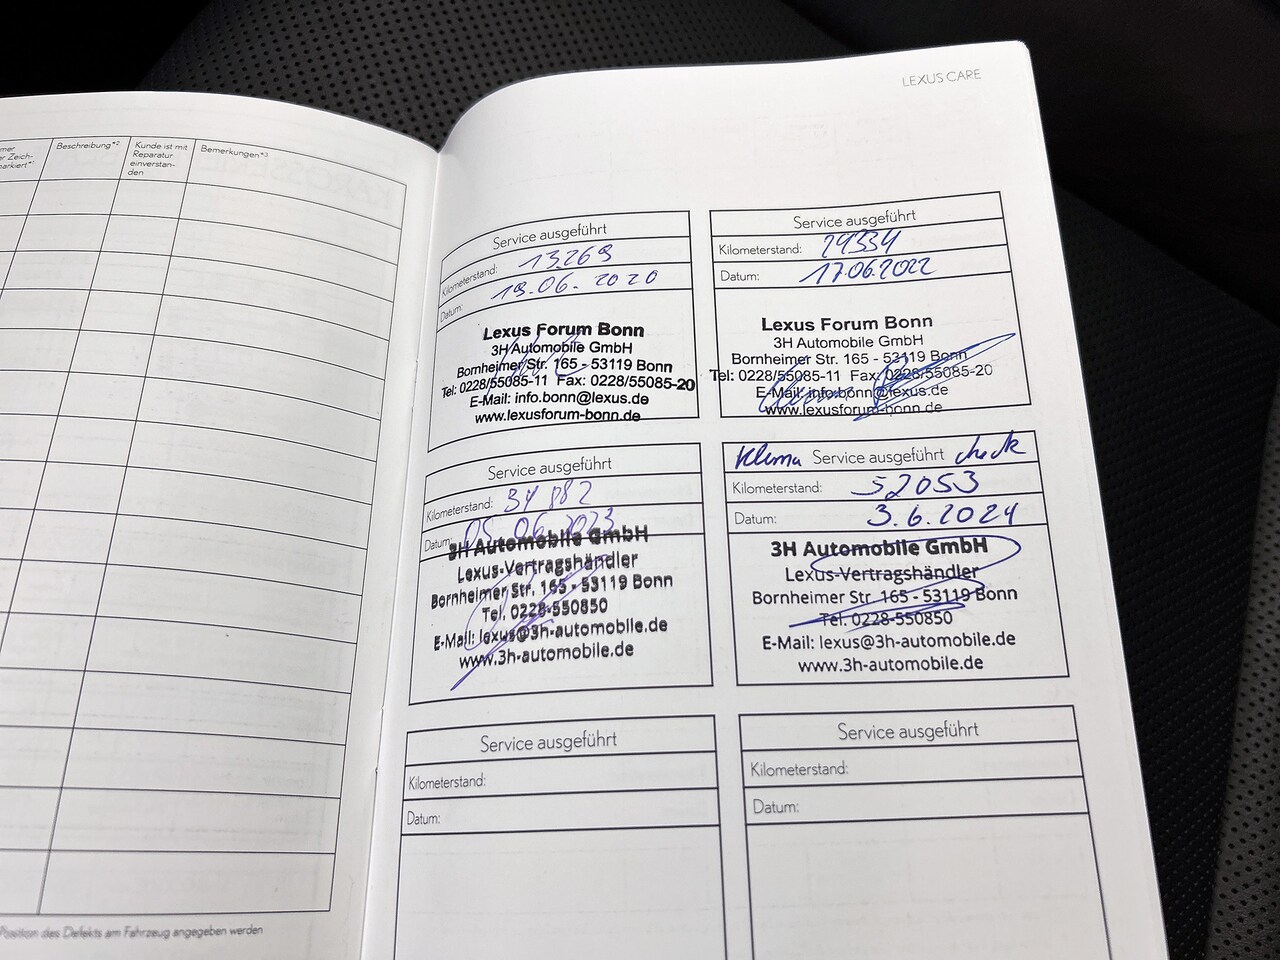 LEXUS CARE
mer
r Zeich-
arkiert*¹
Beschreibung*²
Kunde ist mit
Reparatur
einverstan-
den
Bemerkungen*³
Position des Defekts am Fahrzeug angegeben werden
Service ausgeführt
Kilometerstand: 13.269
Datum: 19.06.2020
Lexus Forum Bonn
3H Automobile GmbH
Bornheimer Str. 165 - 53119 Bonn
Tel: 0228/55085-11 Fax: 0228/55085-20
E-Mail: info.bonn@lexus.de
www.lexusforum-bonn.de
Service ausgeführt
Kilometerstand: 29334
Datum: 17.06.2022
Lexus Forum Bonn
3H Automobile GmbH
Bornheimer Str. 165 - 53119 Bonn
Tel: 0228/55085-11 Fax: 0228/55085-20
E-Mail: info.bonn@lexus.de
www.lexusforum-bonn.de
Service ausgeführt
Kilometerstand: 34882
Datum: 05.06.2023
3H Automobile GmbH
Lexus-Vertragshändler
Bornheimer Str. 165 - 53119 Bonn
Tel. 0228-550850
E-Mail: lexus@3h-automobile.de
www.3h-automobile.de
Klima Service ausgeführt check
Kilometerstand: 52053
Datum: 3.6.2024
3H Automobile GmbH
Lexus-Vertragshändler
Bornheimer Str. 165 - 53119 Bonn
Tel. 0228-550850
E-Mail: lexus@3h-automobile.de
www.3h-automobile.de
Service ausgeführt
Kilometerstand:
Datum:
Service ausgeführt
Kilometerstand:
Datum: